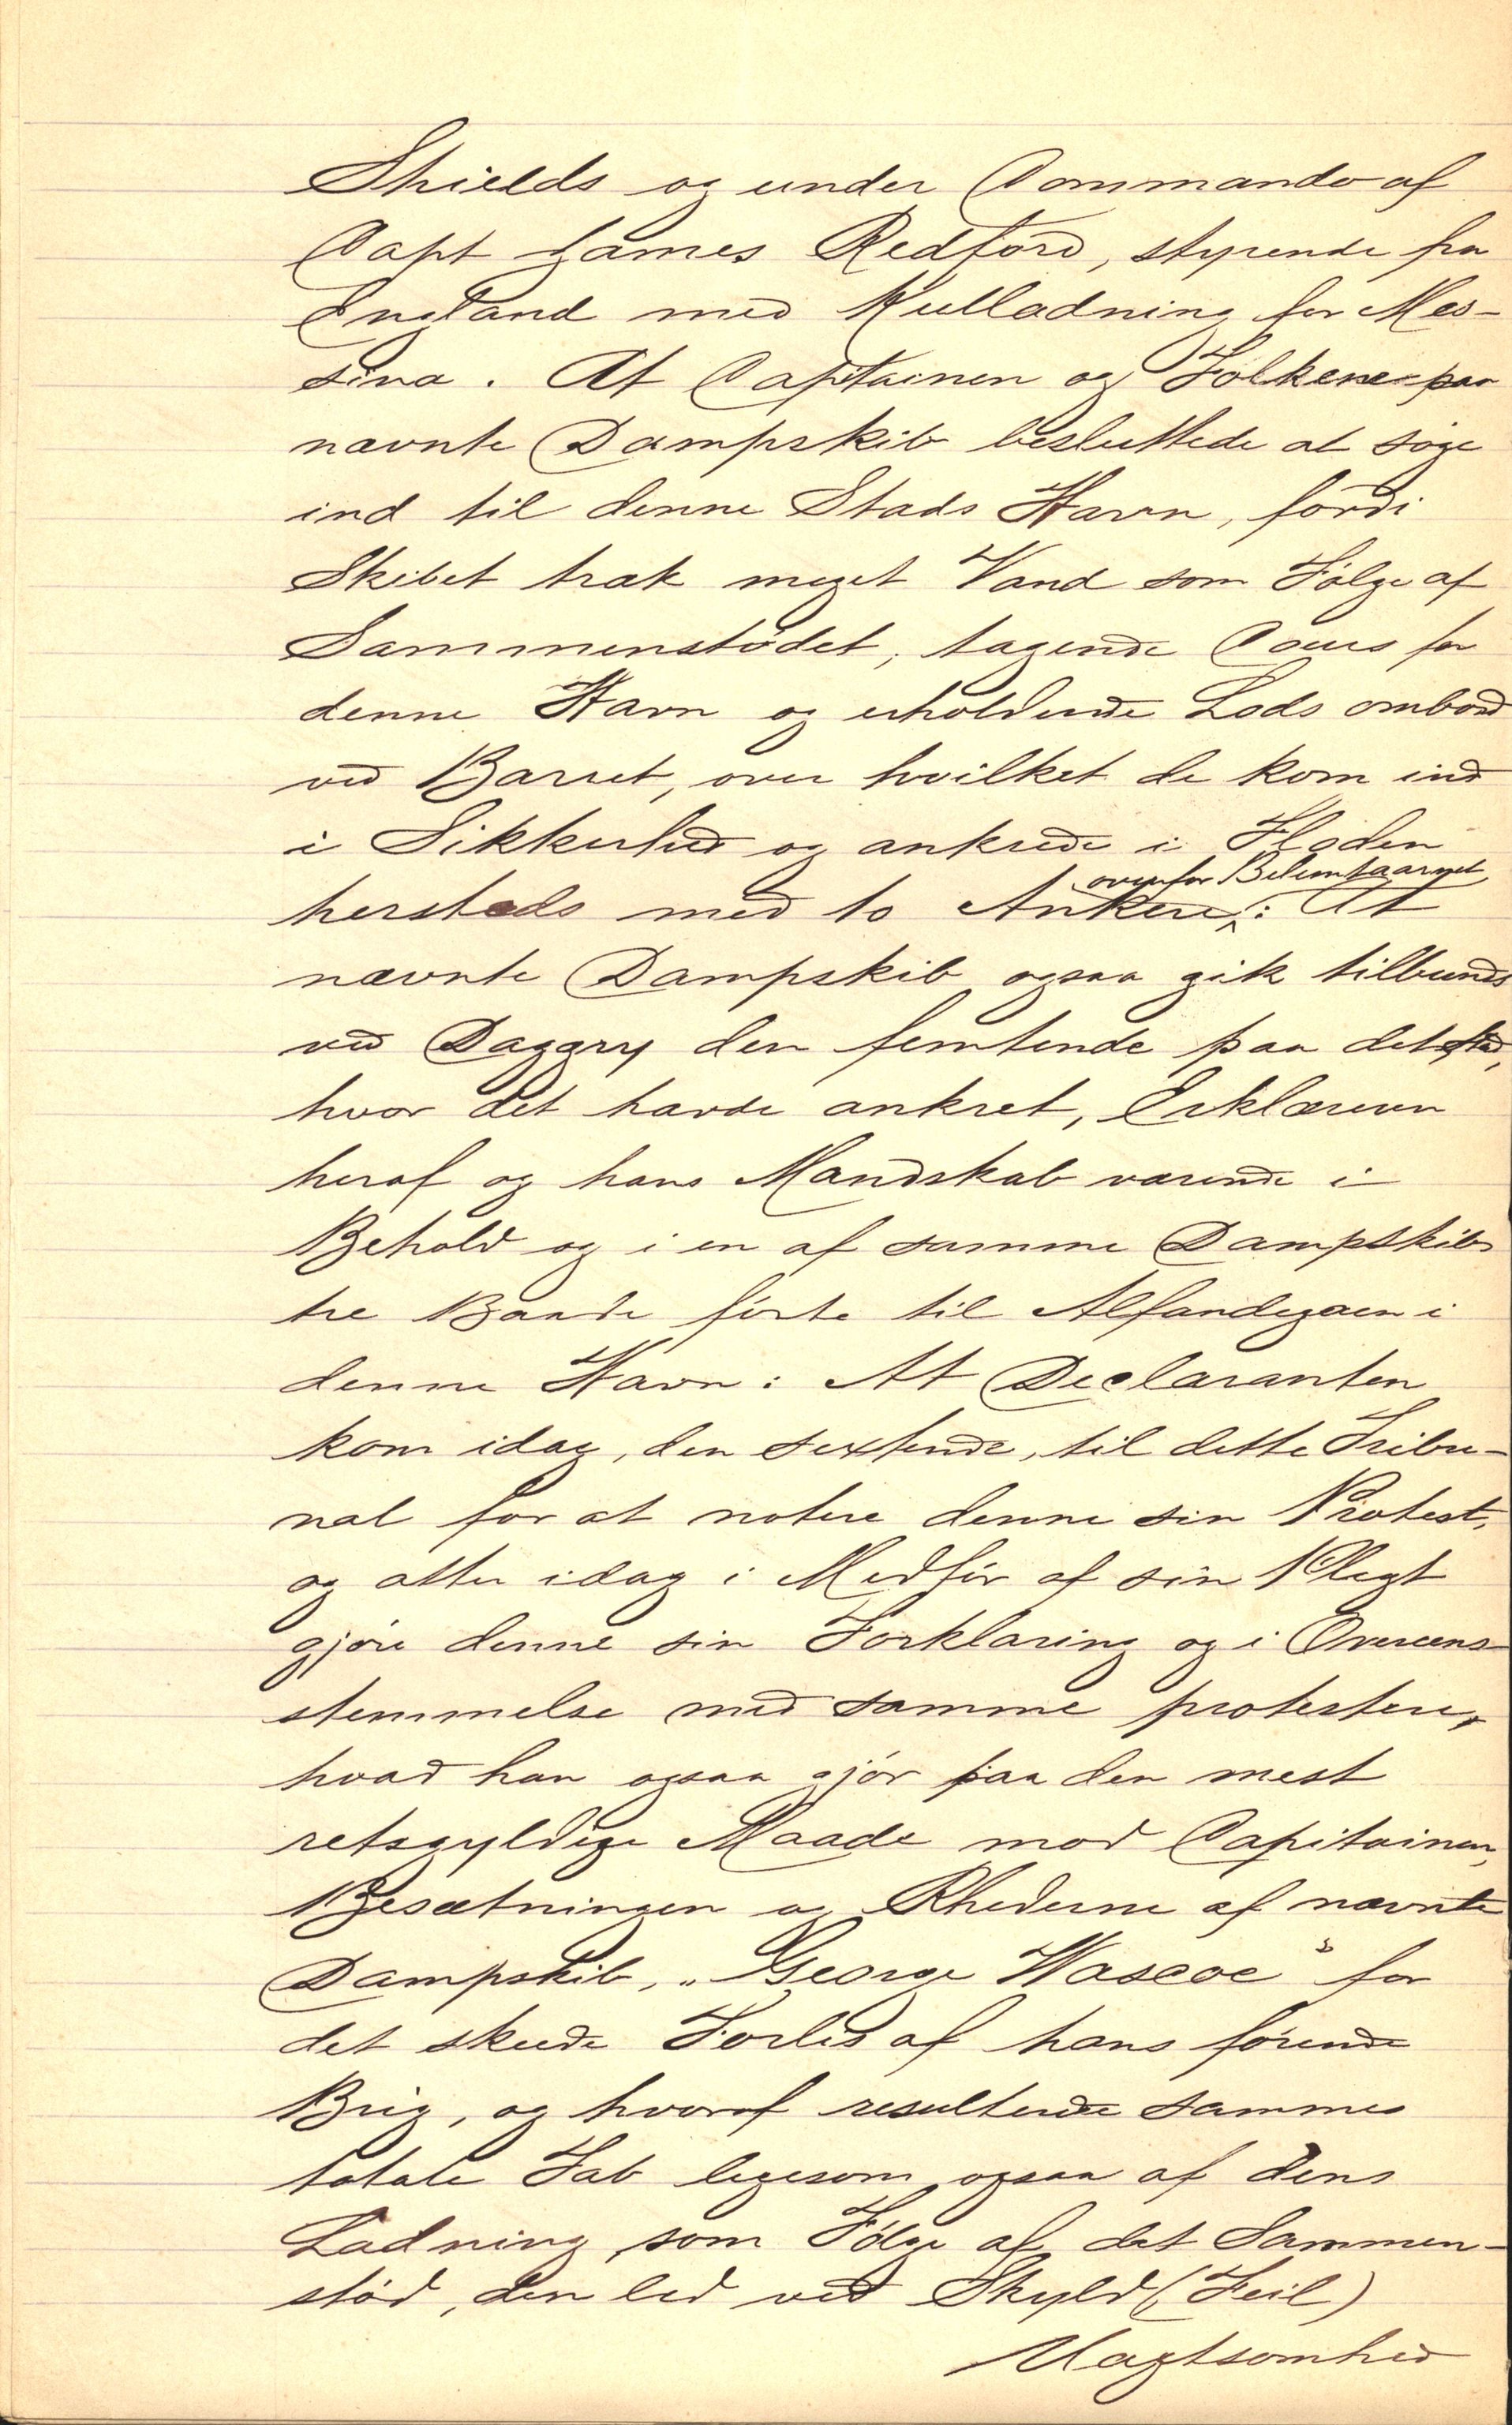 Shields og under Commando af
Capt James Redford, styrende fra
England med Kulladning for Mes-
sina. At Captainen og Folkene paa
nævnte Dampskib besluttede at søge
ind til denne Stads Havn, fordi
Skibet trak meget Vand som Følge af
Sammenstødet, tagende Cours for
denne Havn og erholdende Lods ombord
ved Barret, over hvilket de kom ind
i Sikkerhed og ankrede i Floden
ovenfor Belemtaarnet
hersteds med to Ankere: At
nævnte Dampskib ogsaa gik tilbunds
ved Daggry den femtende paa det Sted,
hvor det havde ankret, Erklæreren
heraf og hans Mandskab værende i
Behold og i en af samme Dampskibs
tre Baade førte til Alfandegaen i
denne Havn: At Declaranten
kom idag, den sextende, til dette Tribu-
nal for at notere denne sin Protest,
og atter idag i Medfør af sin Pligt
gjøre denne sin Forklaring og i Overeens-
stemmelse med samme protestere,
hvad han ogsaa gjør paa den mest
retsgyldige Maade mod Capitainen,
Besætningen og Rhederne af nævnte
Dampskib, "George Wascoe" for
det skeede Forlis af hans førende
Brig, og hvoraf resulterede sammes
totale Tab ligesom ogsaa af dens
Ladning som Følge af det Sammen-
stød, den led ved Skyld (Feil)
Uagtsomhed